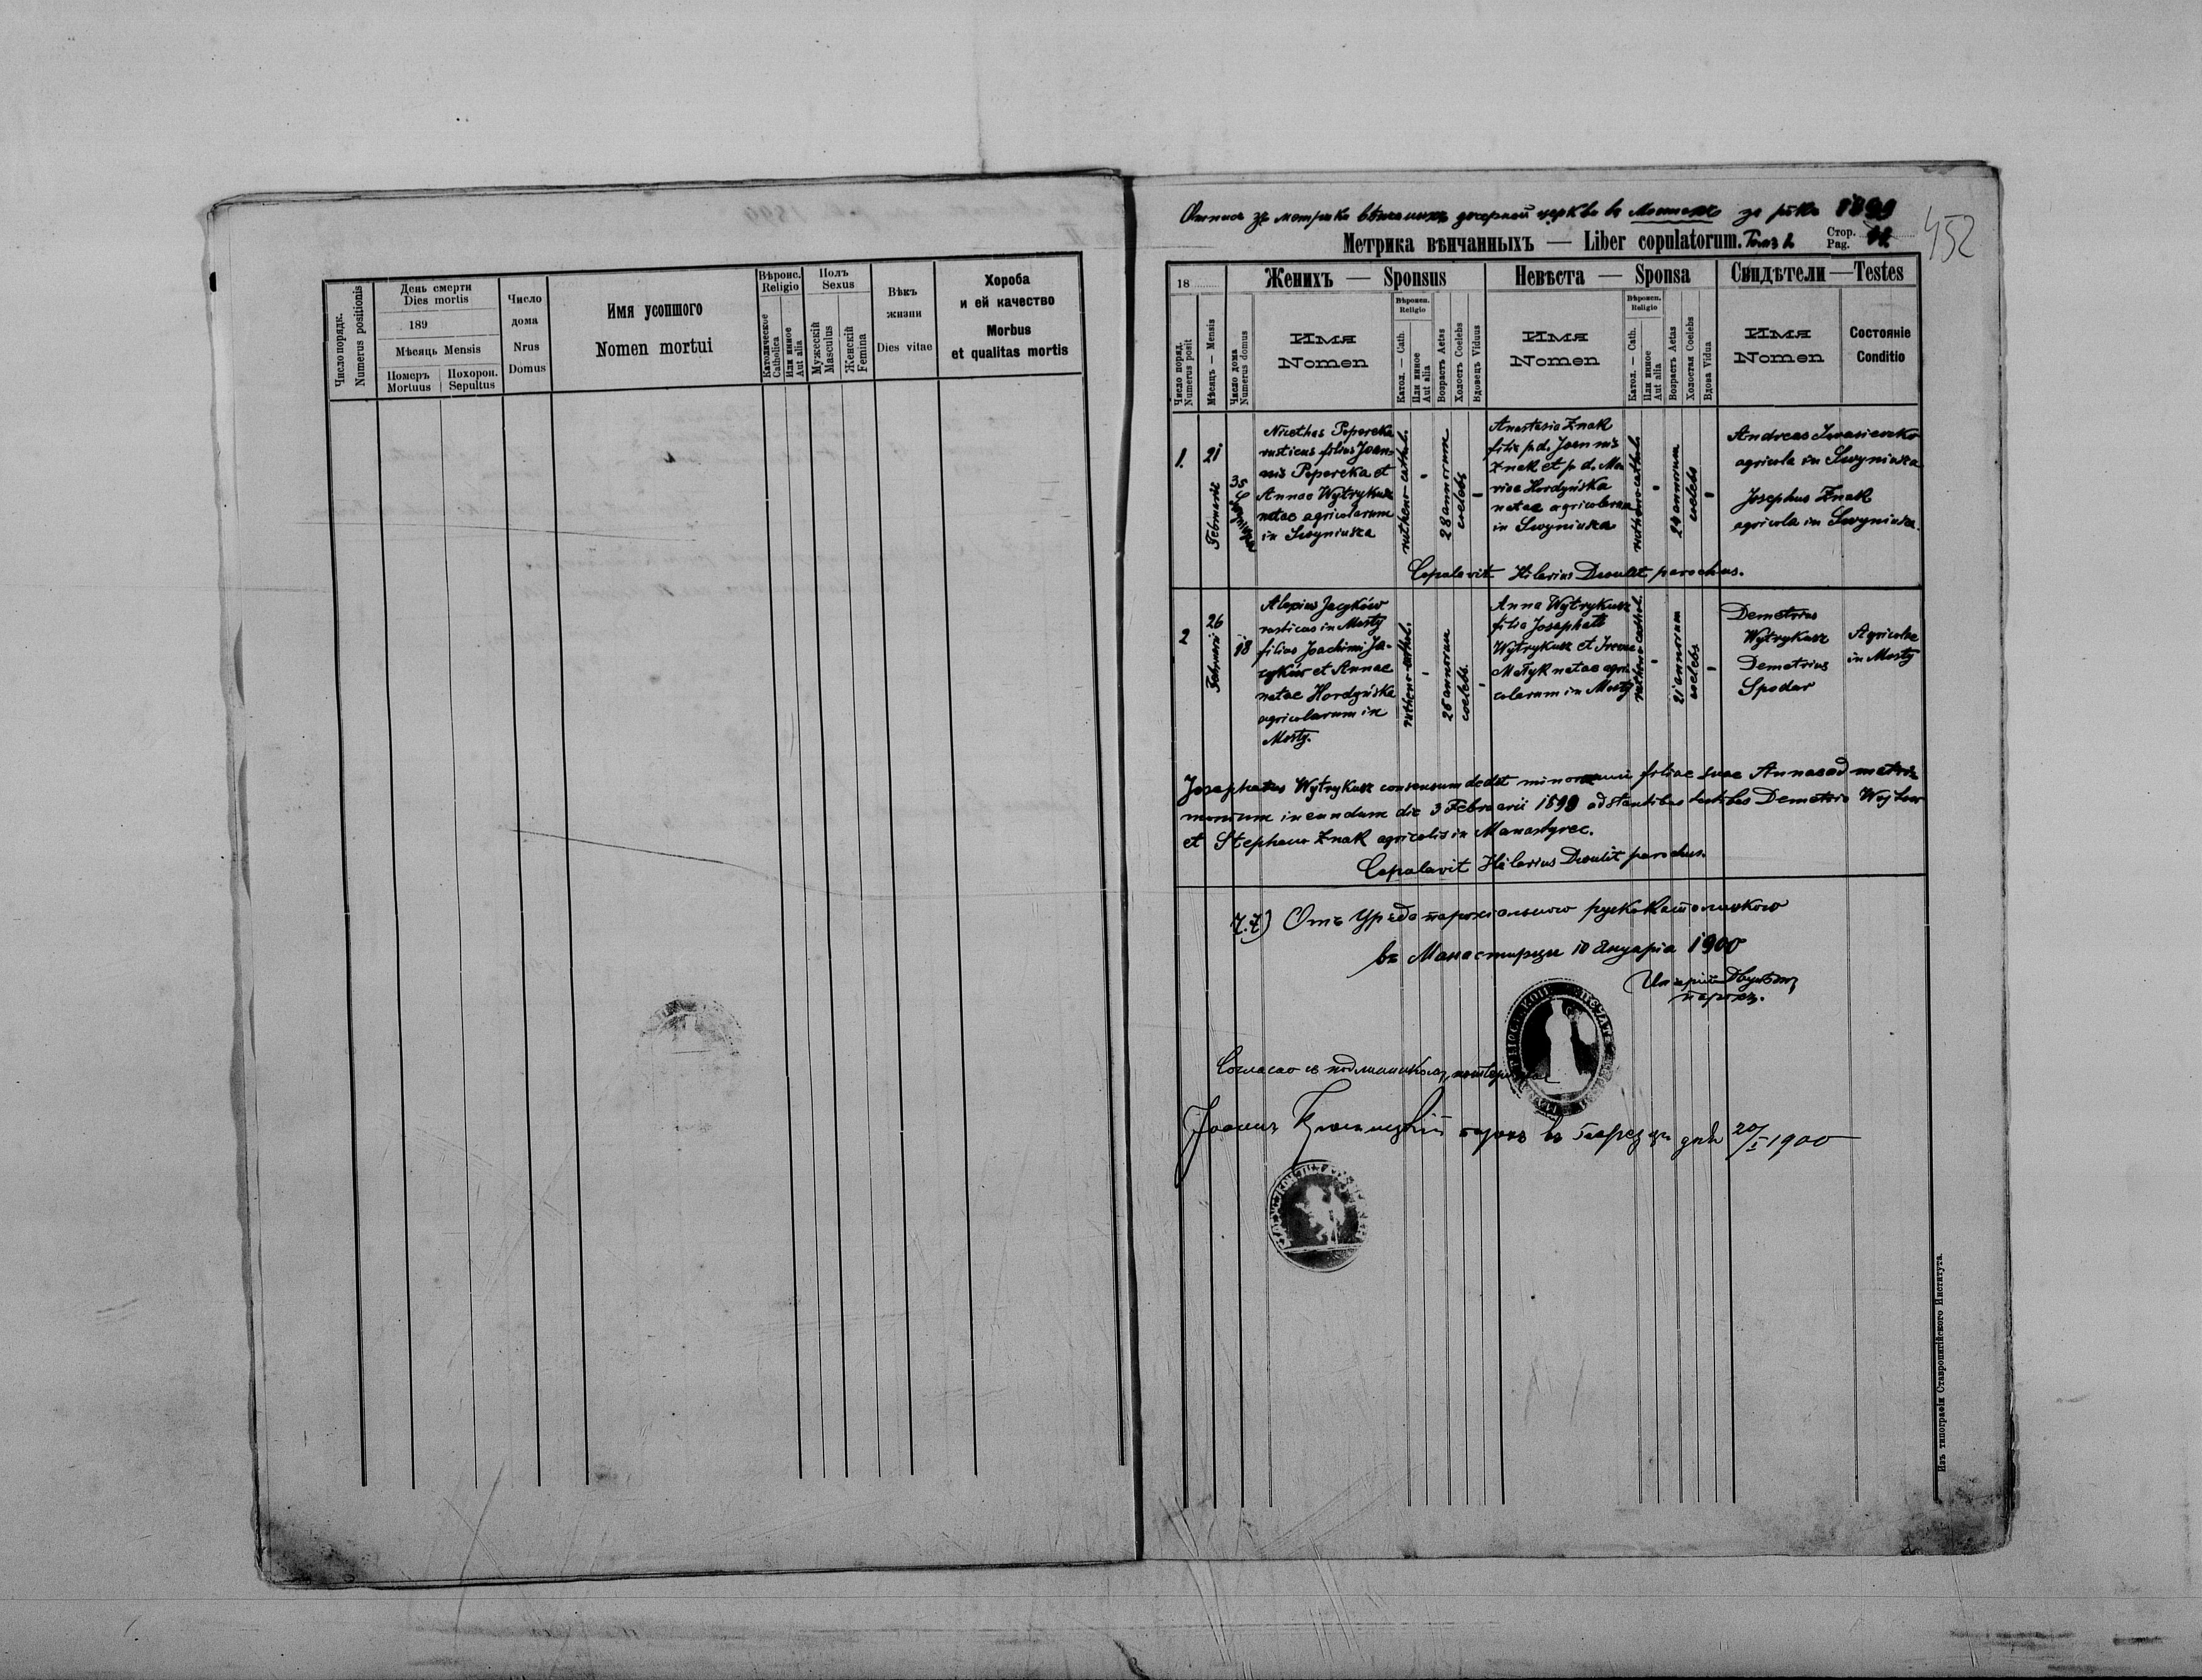 Число порядк.
Numerus positionis
День смерти
Dies mortis
189
Мѣсяць Mensis
Померъ
Mortuus
Похорон.
Sepultus
Число
дома
Nrus
Domus
Имя усопшого
Nomen mortui
Вѣроис.
Religio
Католическое
Catholica
Или иное
Aut alia
Полъ
Sexus
Мужескій
Masculus
Женскій
Femina
Вѣкъ
жизни
Dies vitae
Хороба
и ей качество
Morbus
et qualitas mortis
за 1899
452
Метрика вѣнчанныхъ — Liber copulatorum. Том I.
Стор.
Pag.
18
Женихъ — Sponsus
Невѣста — Sponsa
Свидѣтели — Testes
Число поряд.
Numerus posit
Мѣсяцъ — Mensis
Число дома
Numerus domus
Имя
Nomen
Вѣроисп.
Religio
Катол. — Cath.
Или иное
Aut alia
Возрастъ Aetas
Холостъ Coelebs
Вдовецъ Viduus
Имя
Nomen
Вѣроисп.
Religio
Катол. — Cath.
Или иное
Aut alia
Возрастъ Aetas
Холостая Coelebs
Вдова Vidua
Имя
Nomen
Состояніе
Conditio
1.
21
Februarii
Nicethas Popereka
rusticus filius Joan-
nis Popereka et
Annae Wytrykusz
natae agricolarum
in Swyniusza
rutheno-cathol.
28 annorum
coelebs
Anastasia Znak
filia p.d. Joannis
Znak et p.d. Ma
riae Hordyńska
natae agricolarum
in Swyniusza
rutheno-cathol.
24 annorum
coelebs
Andreas
agricola in Swyniusza
Josephus Znak
agricola in Swyniusza.
Copulavit Hilarius Dwulit parochus.
2
26
Februarii
18
Alexius Jacyków
rusticus in Mosty
filius Joachimi Ja-
cyków et Annae
natae Hordyńska
agricolarum in
Mosty.
rutheno-cathol.
26 annorum
coelebs.
Anna Wytrykusz
filia Josaphati
Wytrykusz et Irenae
Matyk natae agri
colarum in Mosty
rutheno-cathol.
21 annorum
coelebs
Demetrius
Wytrykusz
Demetrius
Spodar
Agricolae
in Mosty
Josaphatus Wytrykusz consensum dedit minorenni filiae suae Annae ad matri-
monium ineundum die 3 Februarii 1899 adstantibus testibus Demetrio
et Stephano Znak agricolis in Manastyrec.
Copulavit Hilarius Dwulit parochus.
Отъ Уряда парохіального
въ Манастирци 10 Януарія 1900
Иларій Двулѣт
парохъ.
Согласно съ подлинникомъ
Іоаннъ парохъ въ дня 20/I 1900
Изъ типографіи Ставропигійского Института.